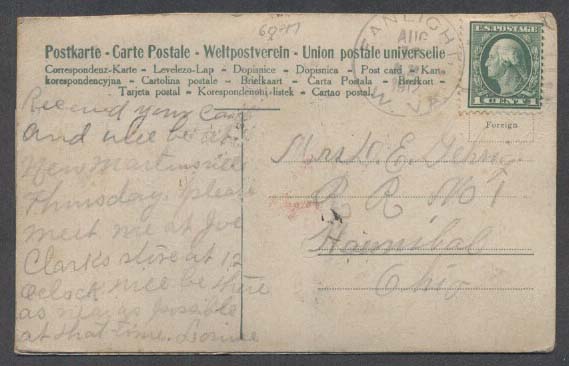 Postkarte - Carte Postale - Weltpostverein - Union postale universelle
Correspondenz-Karte - Levelezo-Lap - Dopisnice - Dopisnica - Post card - Karta
korespondencyjna - Cartolina postale - Briefkaart - Carta Postala - Brefkort -
Tarjeta postal - Korespondenční lístek - Cartao postal.
U.S. POSTAGE
1 CENT 1
Foreign
AUG
Received your card
and will be at
New Martinsville
Thursday. Please
meet me at Joe
Clarks store at 12
oclock will be there
as near as possible
at that time.
Mrs D. E.
R R No 1
Hannibal
Ohio